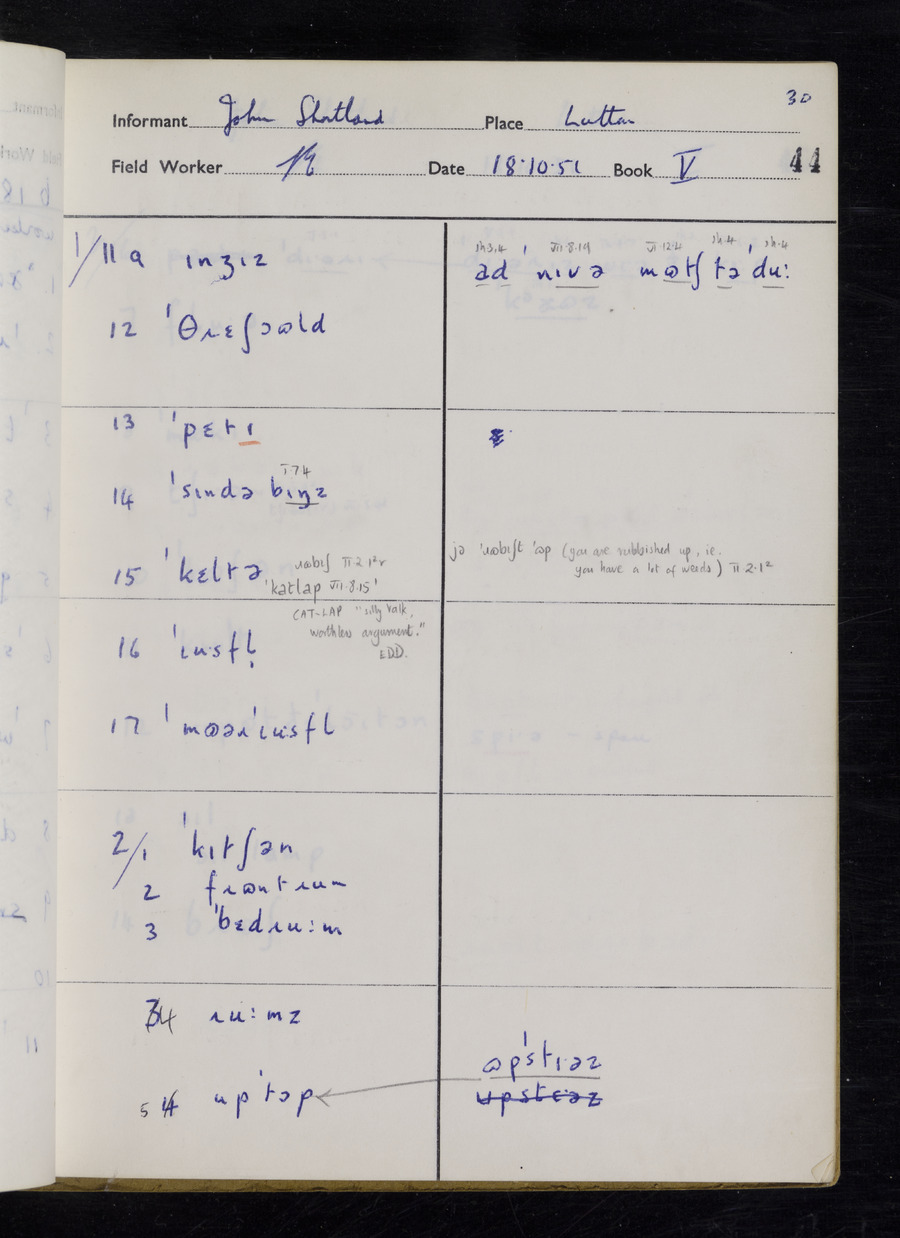 30
Informant John Shortland Place Lutton
Field Worker Date 18·10·51 Book V 44
1/11 a ɪnʒɪz
12 ˈθɹɛʃɔɷld
13 ˈpɛtɪ
I 7 4
14 ˈsɪndə bɪŋz
15 ˈkɛltə
ɹɷbɪʃ II 2 1²r
ˈkatlap VII·8·15ˈ
CAT-LAP "silly talk,
worthless argument."
EDD.
16 ˈɩusfl̩
17 ˈmɷəɹˈɩusfl
2/1 ˈkɪtʃən
2 fɹɷntɹum
3 ˈbɛdɹu:m
4 ɹu:mz
5 upˈtɔp
sh 3,4 VII·8·19 VI·12·4 sh·4 sh·4
ad ˈnɪvə mɷtʃ təˈdu:
jə ˈɹɷbɪʃt ˈɷp (you are rubbished up, ie.
you have a lot of weeds) II 2·1²
ɷpˈstɪəz
upstɛəz